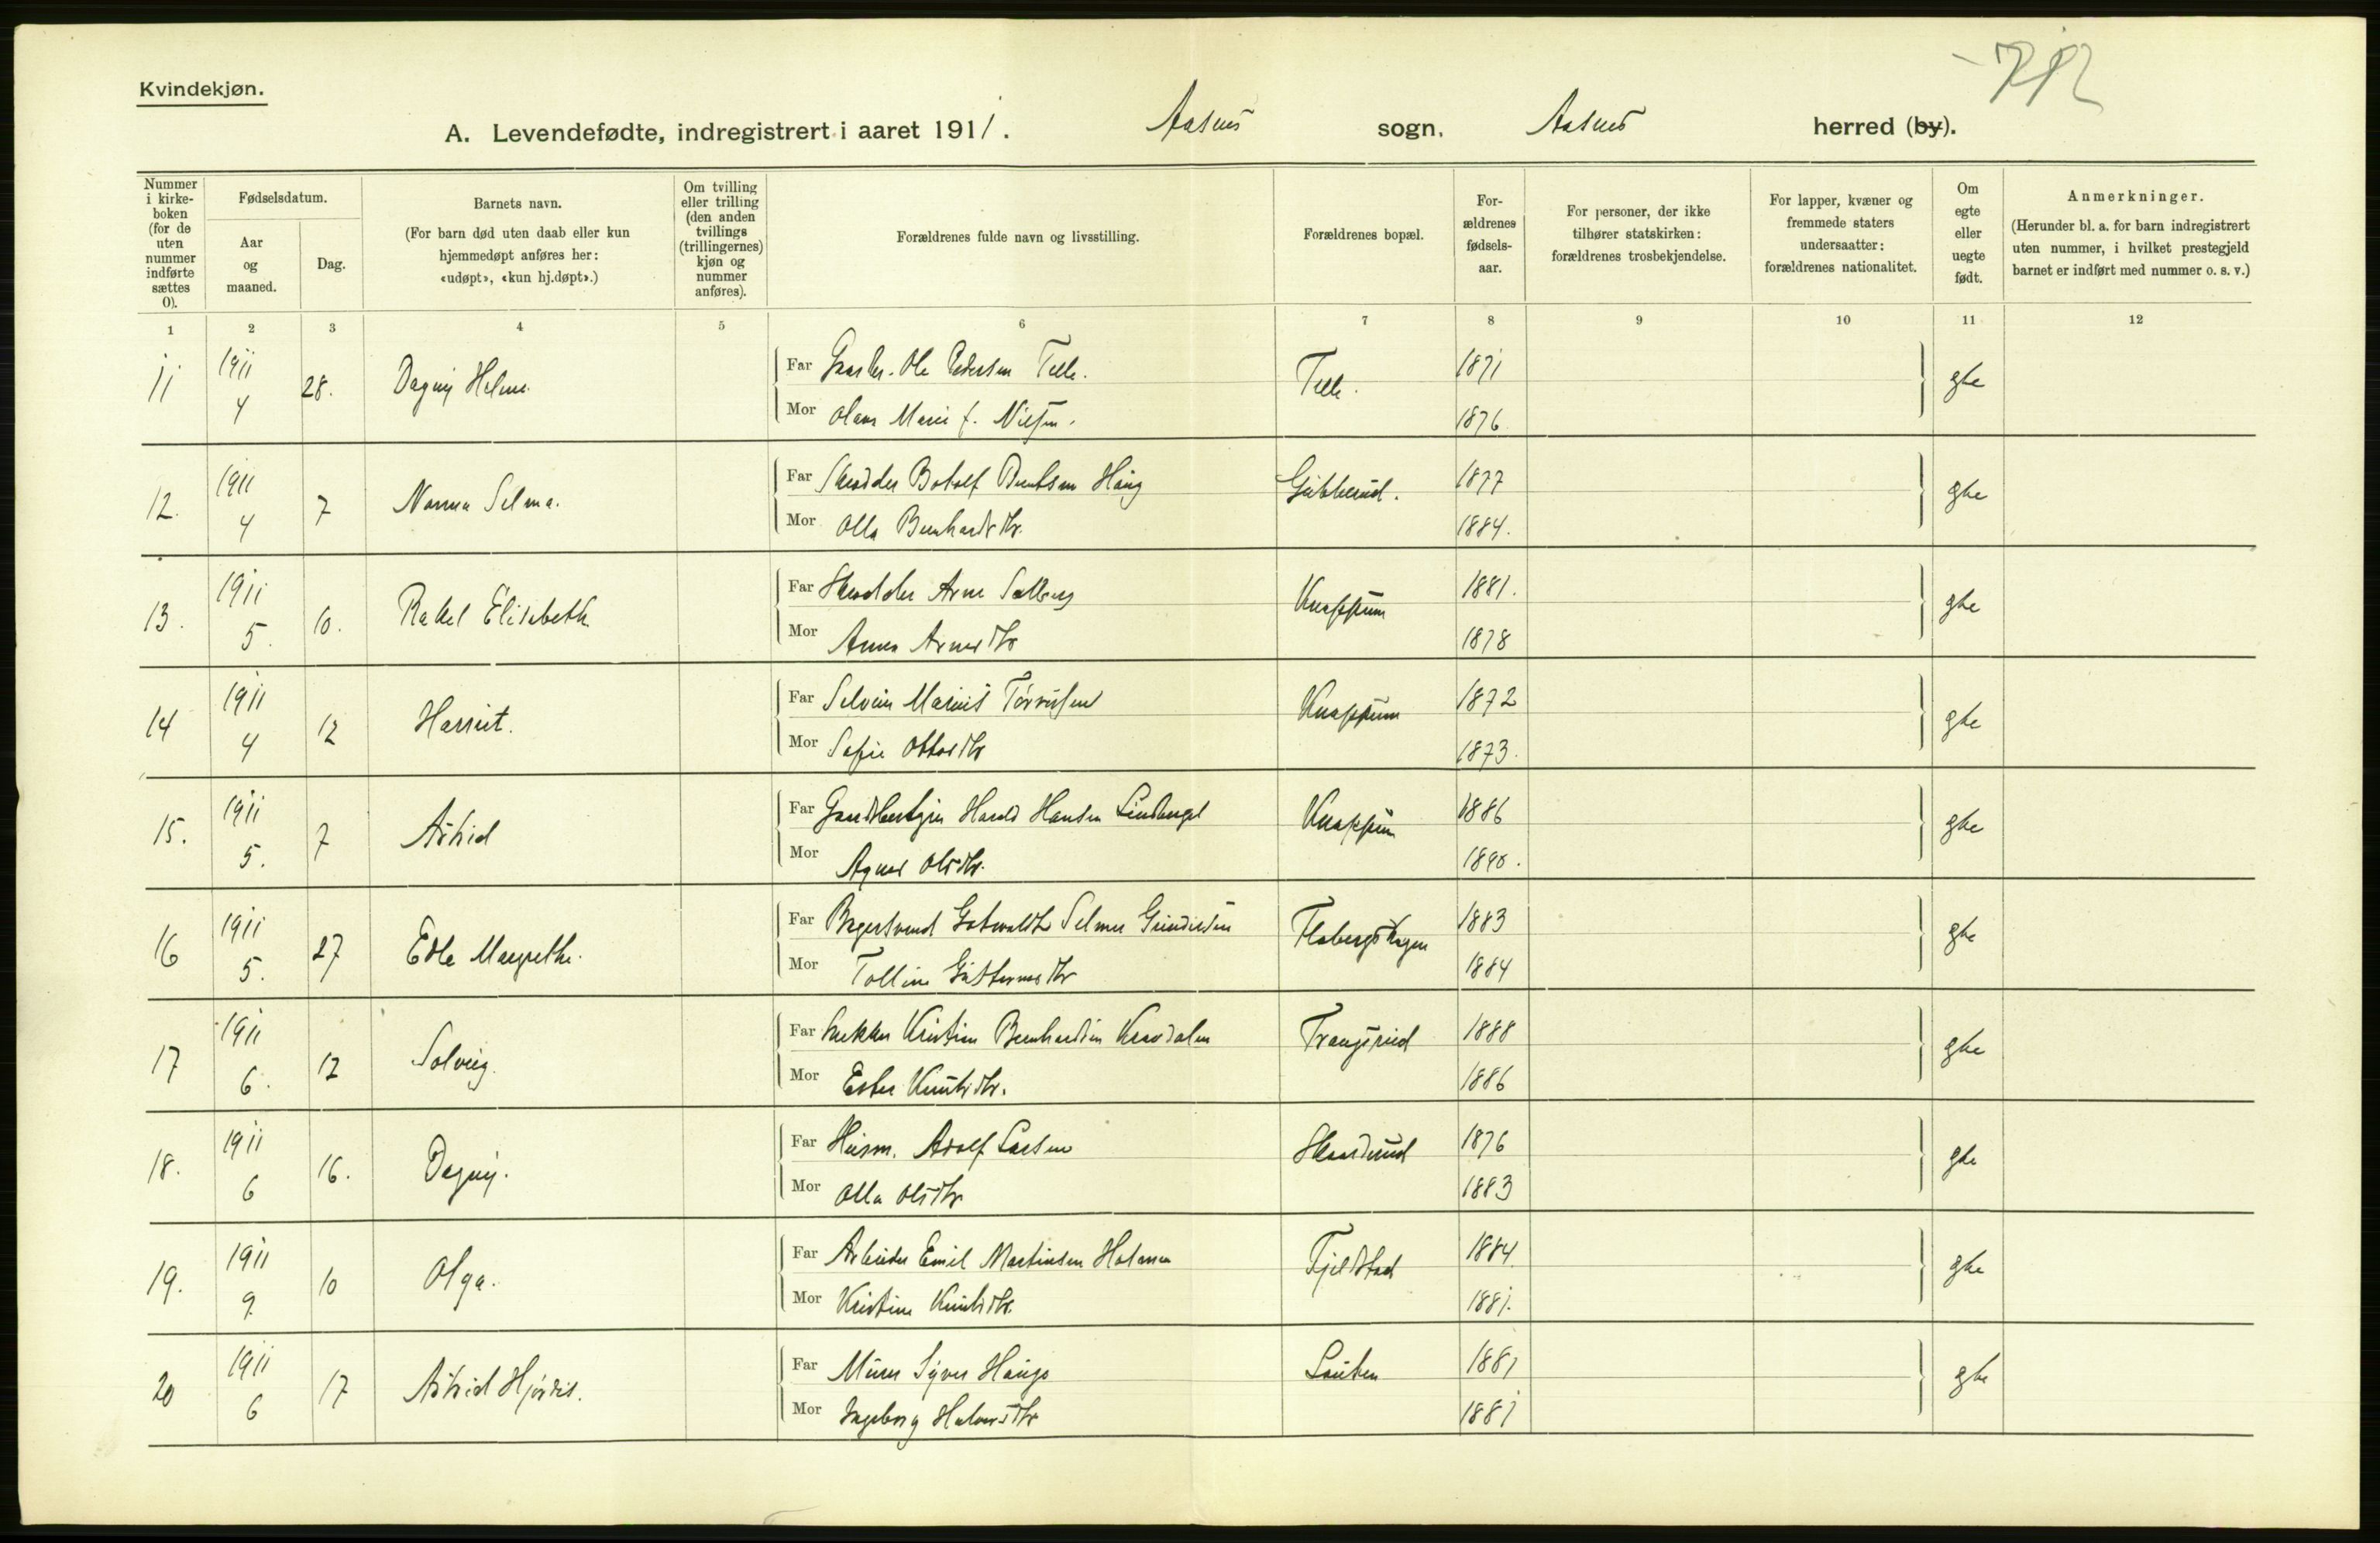 Kvindekjøn.
A. Levendefødte, indregistrert i aaret 1911. Aasnes sogn, Aasnes herred (by).
Nummer i kirkeboken (for de uten nummer indførte sættes 0).
Fødselsdatum.
Aar og maaned.
Dag.
Barnets navn.
(For barn død uten daab eller kun hjemmedøpt anføres her: «udøpt», «kun hj.døpt».)
Om tvilling eller trilling (den anden tvillings (trillingernes) kjøn og nummer anføres).
Forældrenes fulde navn og livsstilling.
Forældrenes bopæl.
Forældrenes fødselsaar.
For personer, der ikke tilhører statskirken: forældrenes trosbekjendelse.
For lapper, kvæner og fremmede staters undersaatter: forældrenes nationalitet.
Om egte eller uegte født.
Anmerkninger.
(Herunder bl. a. for barn indregistrert uten nummer, i hvilket prestegjeld barnet er indført med nummer o. s. v.)
1 2 3 4 5 6 7 8 9 10 11 12
11 1911 4 28. Dagny Helene Far Ole Pedersen Telle. Telle. 1871 gte
Mor Olava Marie f. Nilsen. 1876
12. 1911 4 7 Nanna Selma. Far Skrædder Botolf Berntsen Haug 1877 gte
Mor Olla Bernhardsdtr. 1884.
13. 1911 5. 10. Rakel Elisabeth Far Skrædder Arne Solberg Knappum 1881. gte
Mor Anna Arnesdtr 1878
14 1911 4 12 Harriet. Far Marius Knappum 1872 gte
Mor Sofie Ottosdtr 1873.
15. 1911 5. 7 Astrid Far Harald Hansen Knappum 1886 gte
Mor Agnes Olsdtr. 1890.
16 1911 5. 27 Edle Margrethe. Far Bagersvend Selmer 1883 gte
Mor Tolline 1884
17 1911 6. 12 Solveig. Far Snekker Kristian Bernhardsen Trangsrud 1888 gte
Mor Ester Knutsdtr. 1886
18. 1911 6 16. Dagny. Far Husm. Adolf Larsen Skaslrud 1876 gte
Mor Olla Olsdtr 1883
19. 1911 9 10 Olga. Far Arbeider Emil Martinsen Fjeldstad 1884. gte
Mor Kristine Knutsdtr. 1881.
20 1911 6 17 Astrid Hjørdis. Far Murer Syver 1881 gte
Mor Ingeborg Halvorsdtr 1881